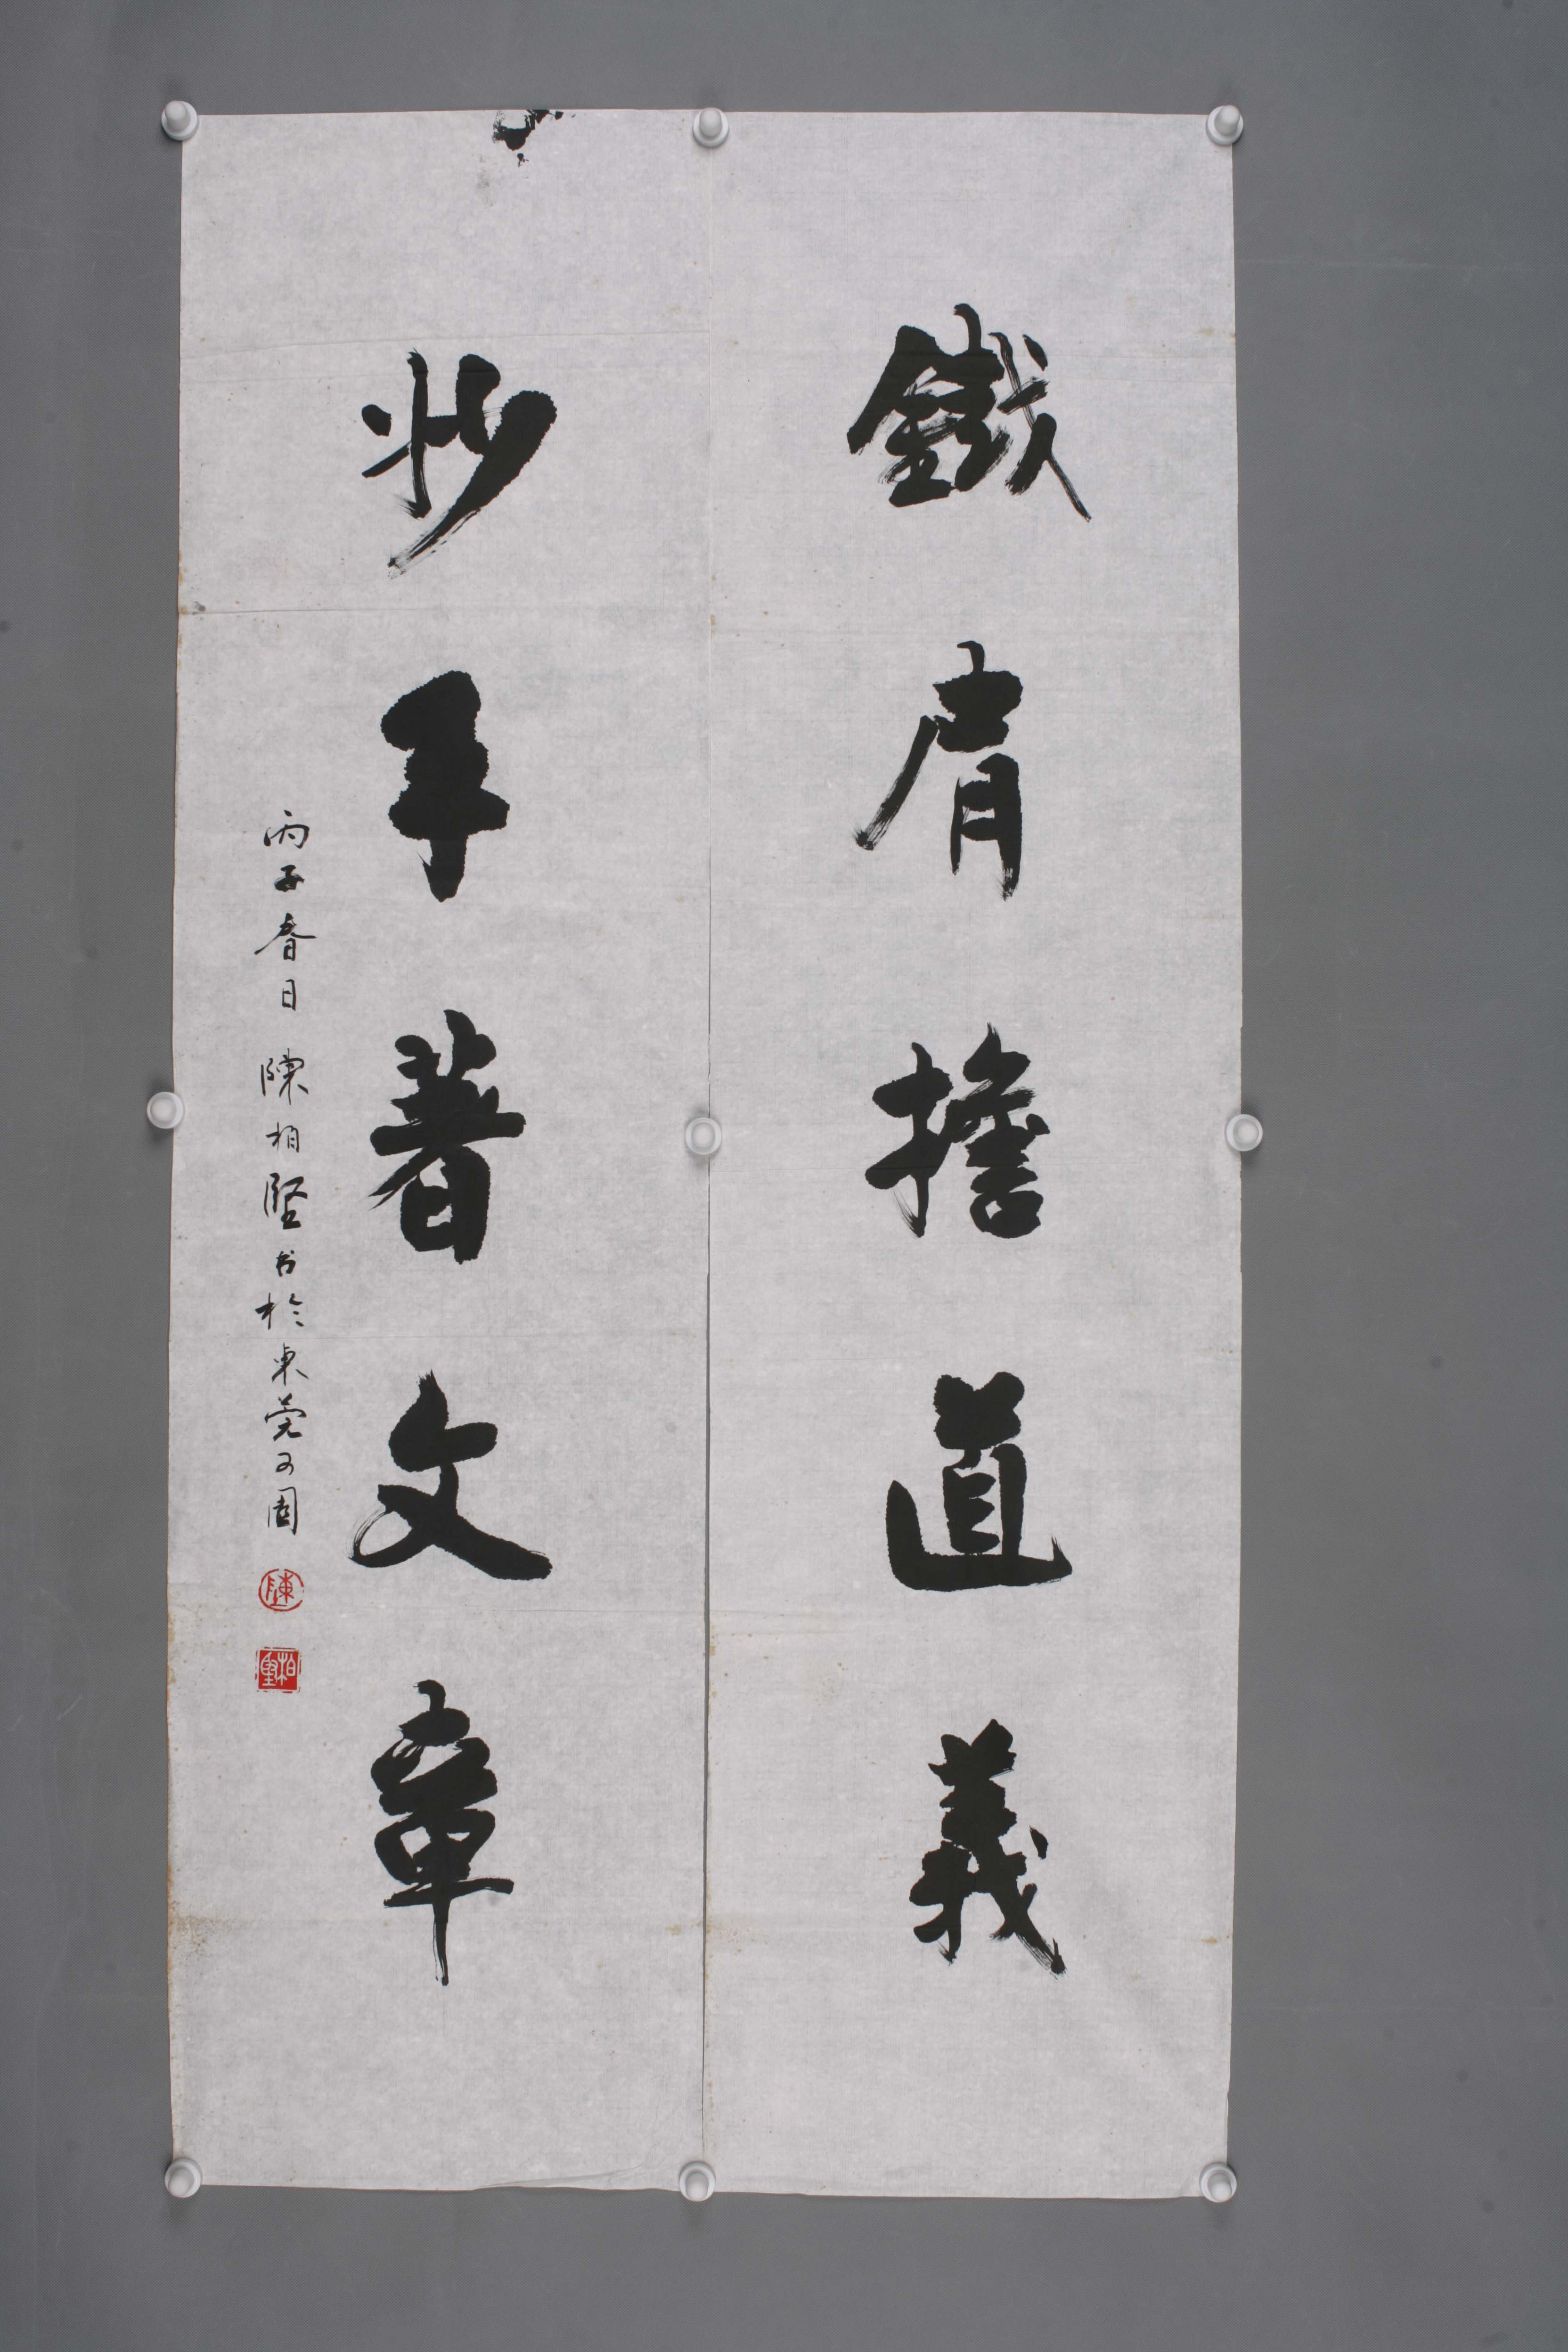 鐵肩擔道義
妙手著文章
丙子春日 陳柏堅书於東莞可園
陳
柏堅